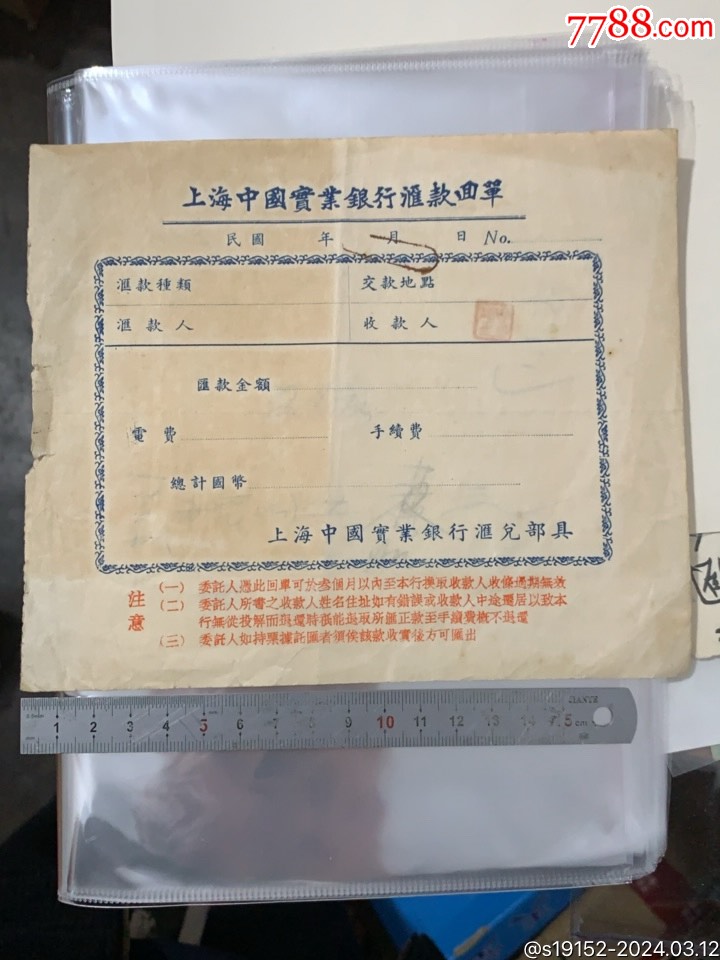 7788.com
上海中國實業銀行滙款回單
民國 年 月 日 No.
滙款種類 交款地點
滙款人 收款人
匯款金額
電費 手續費
總計國幣
上海中國實業銀行滙兌部具
注意
(一) 委託人憑此回單可於叁個月以內至本行換取收款人收條過期無效
(二) 委託人所書之收款人姓名住址如有錯誤或收款人中途遷居以致本
行無從投解而退還時祇能退取所匯正款至手續費概不退還
(三) 委託人如持票據託匯者須俟該款收實後方可匯出
0.5mm 1 2 3 4 5 6 7 8 9 10 11 12 13 14 15 cm
@s19152-2024.03.12